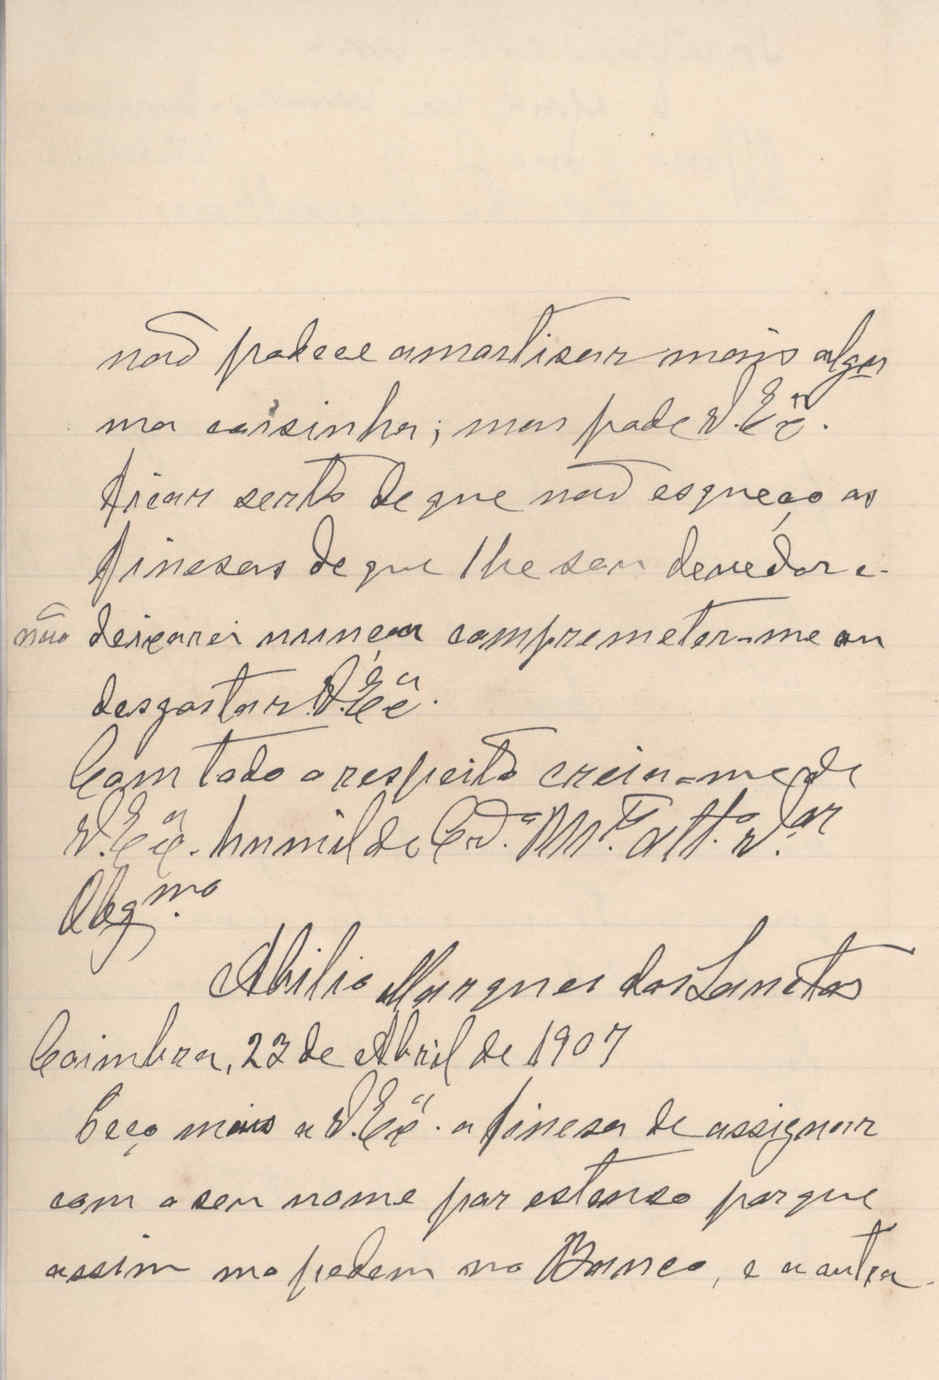 naõ podece amortisar mais algu
ma coisinha; mas pode V. Exª.
ficar serto de que naõ esqueço as
finesas de que lhe sou devedor e
não deixarei nunca comprometer-me ou
desgostar V. Exª.
Com todo o respeito creia-me de
V. Exª. humilde Crdº. Mtº. Attº. V.ºr
Obgmº.
Abilio Marques dos Sanctos
Coimbra, 23 de Abril de 1907
Peço mais a V. Exª. a finesa de assignar
com o seu nome por estenso porque
assim mo pedem no Banco, e a outra